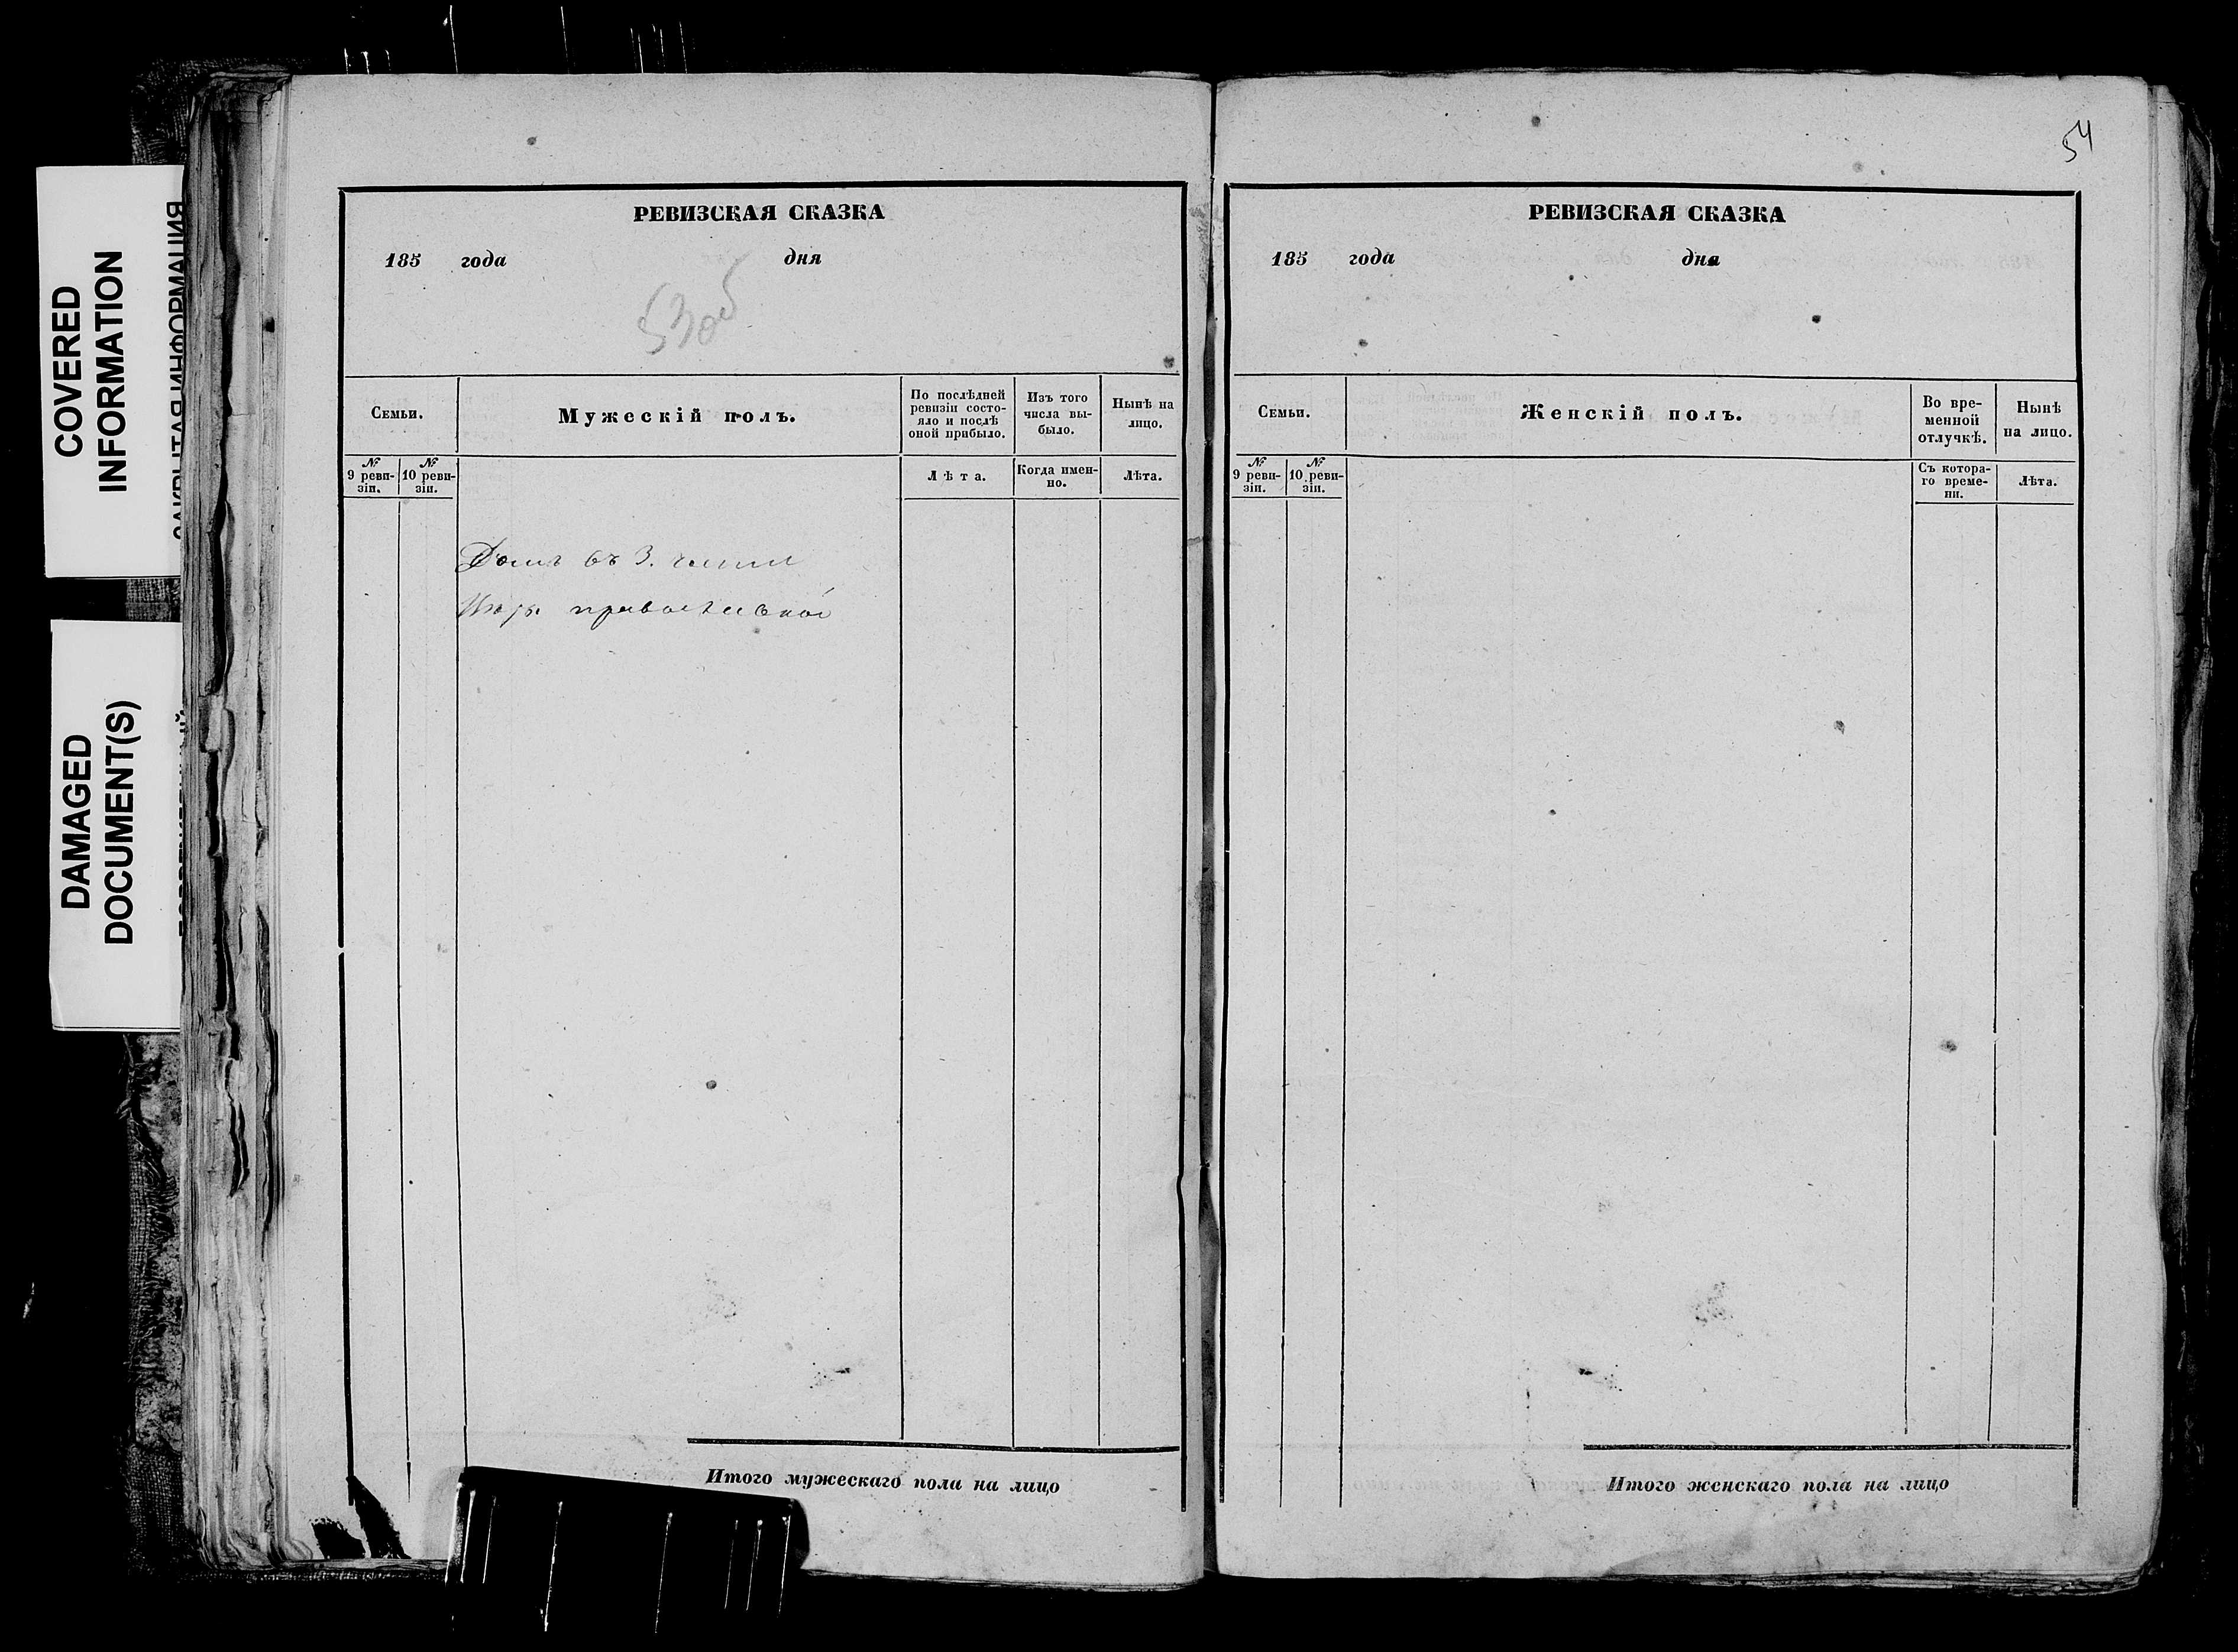 COVERED
INFORMATION
ЗАКРЫТАЯ ИНФОРМАЦИЯ
DAMAGED
DOCUMENT(S)
РЕВИЗСКАЯ СКАЗКА
185 года дня
53 об
Семьи.
Мужескій полъ.
По послѣдней
ревизіи состо-
яло и послѣ
оной прибыло.
Изъ того
числа вы-
было.
Нынѣ на
лицо.
№
9 реви-
зіи.
№
10 реви-
зіи.
Лѣта.
Когда имен-
но.
Лѣта.
Домъ въ 3. части
Итого мужескаго пола на лицо
54
РЕВИЗСКАЯ СКАЗКА
185 года дня
Семьи.
Женскій полъ.
Во вре-
менной
отлучкѣ.
Нынѣ
на лицо.
№
9 реви-
зіи.
№
10 реви-
зіи.
Съ котора-
го време-
ни.
Лѣта.
Итого женскаго пола на лицо